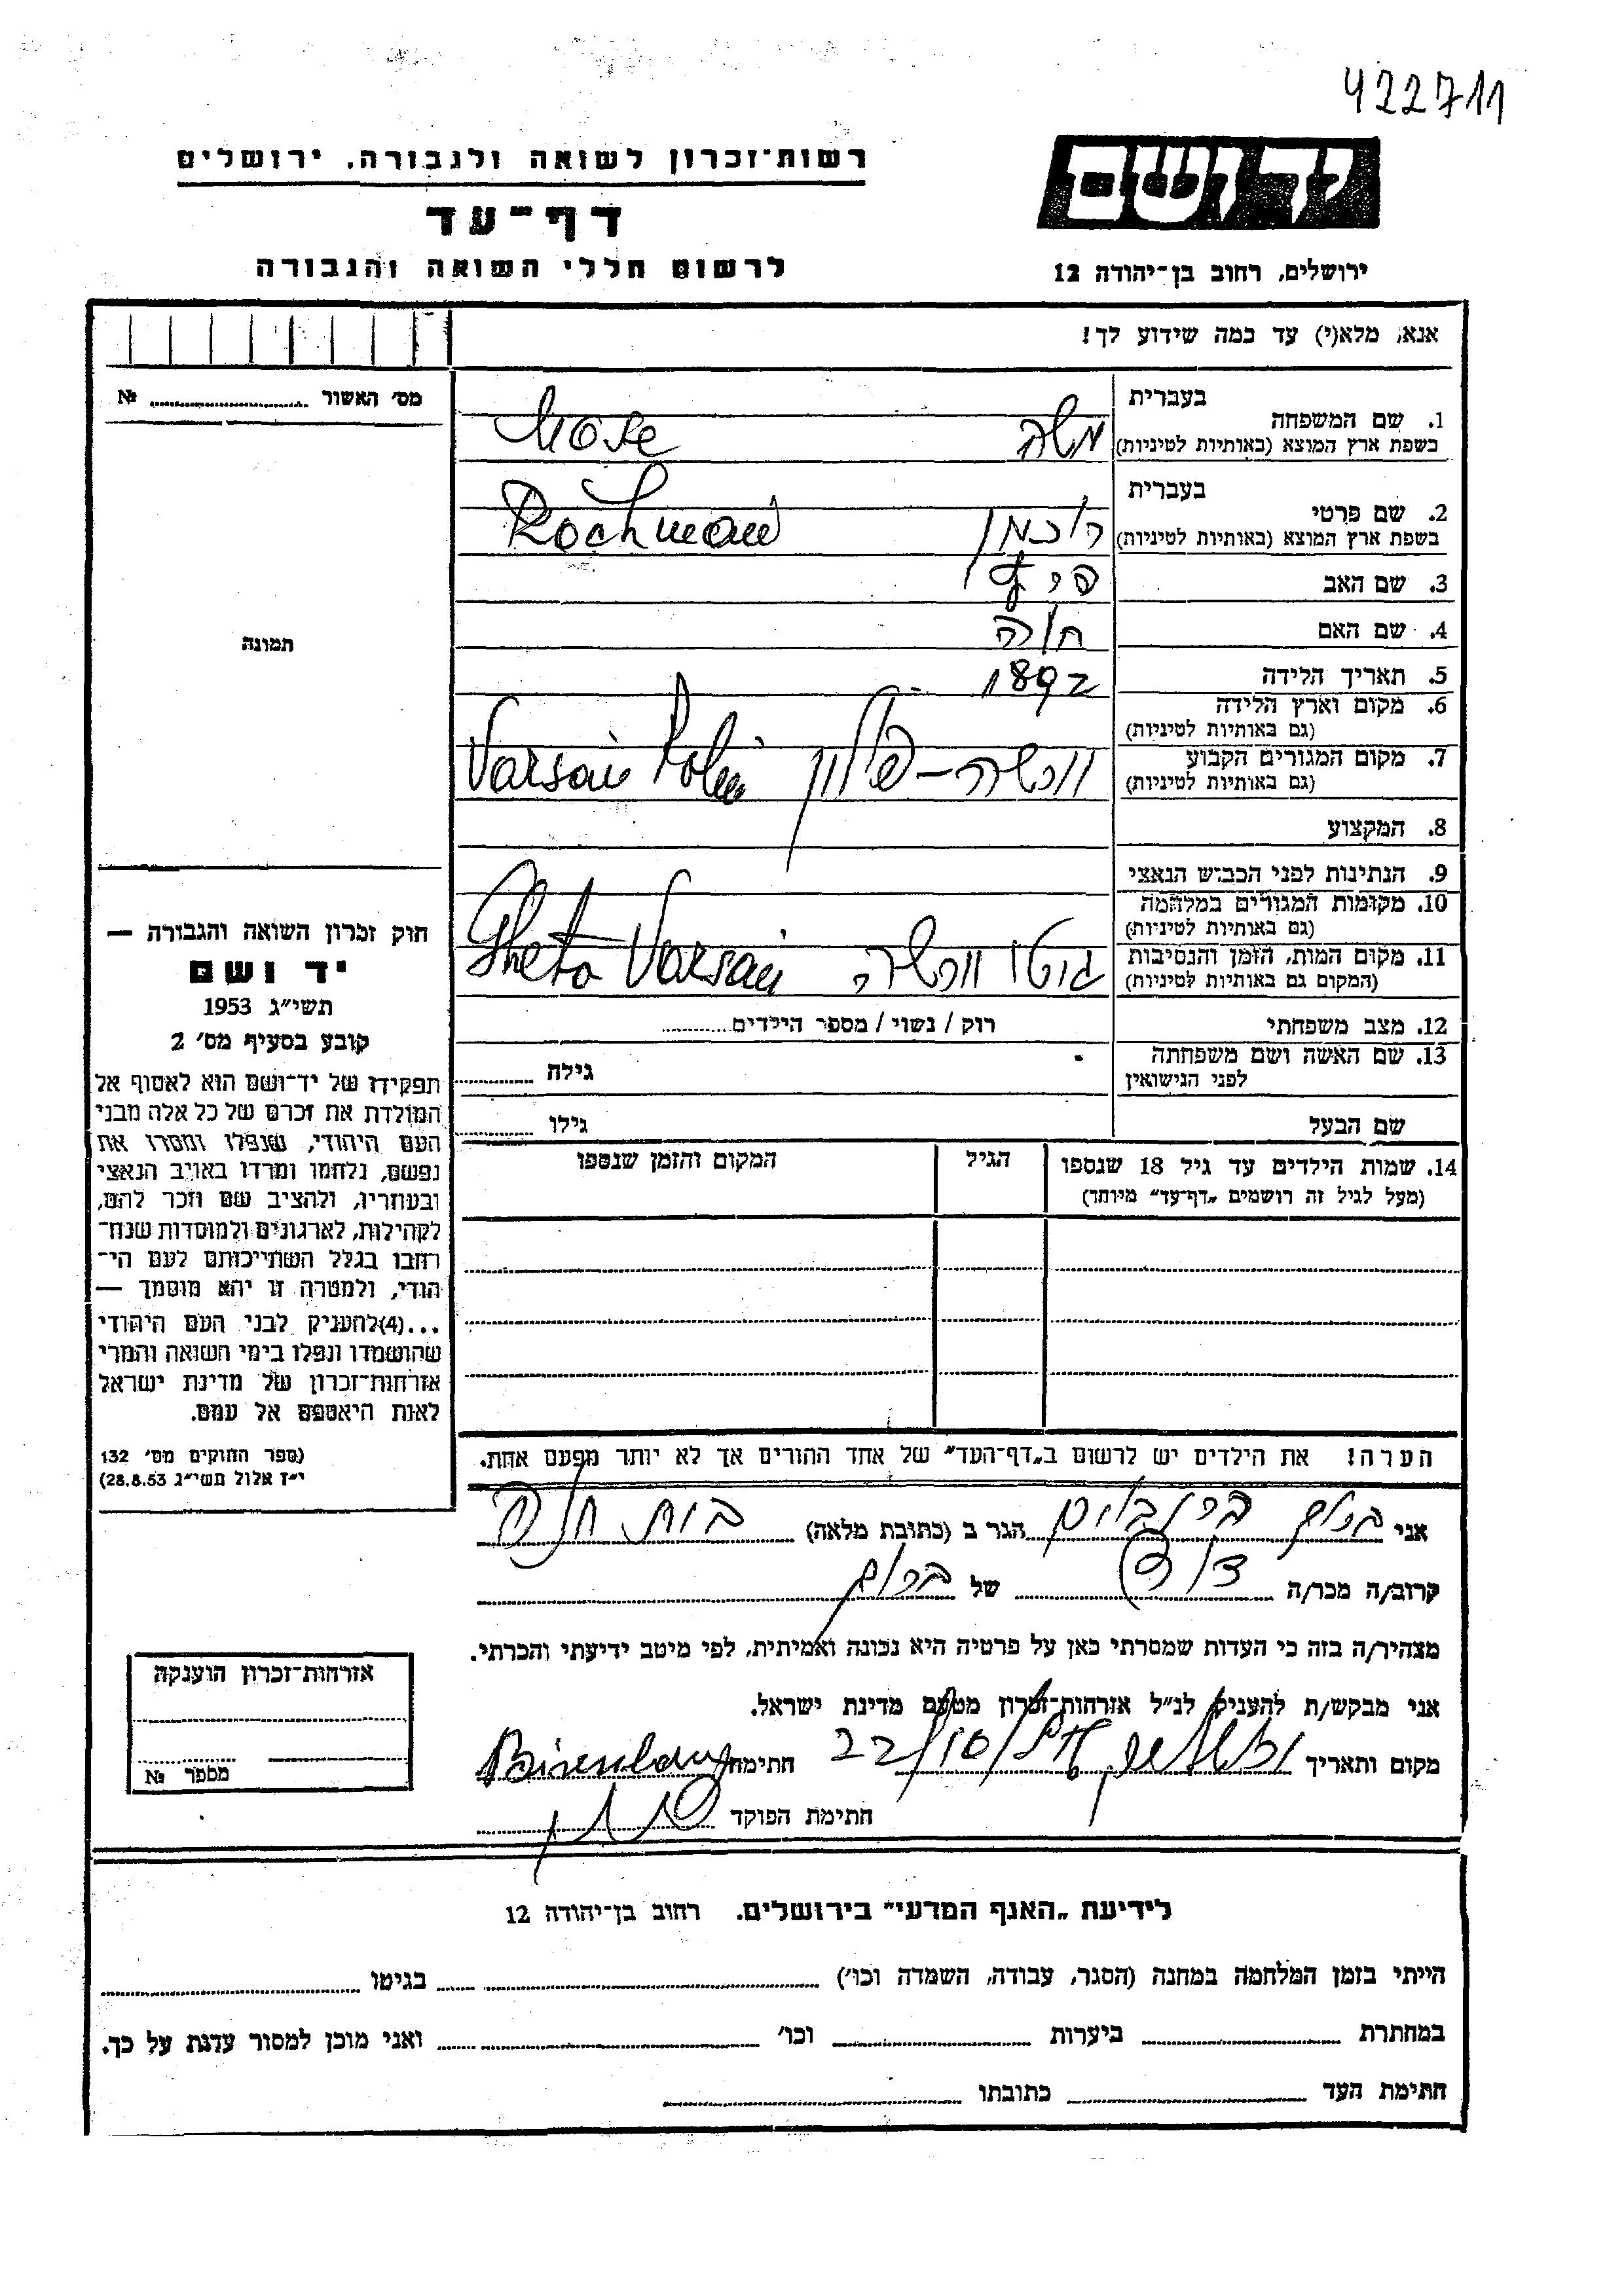 422711
יד ושם
רשות־זכרון לשואה ולגבורה. ירושלים
דף־עד
לרשום חללי השואה והגבורה
ירושלים, רחוב בן־יהודה 12
אנא, מלא(י) עד כמה שידוע לך!
מס׳ האשור № 
בעברית
1. שם המשפחה משה Mose
בשפת ארץ המוצא (באותיות לטיניות)
בעברית
2. שם פרטי רוכמן Rochman
בשפת ארץ המוצא (באותיות לטיניות)
3. שם האב
4. שם האם חוה
5. תאריך הלידה 1892
6. מקום וארץ הלידה
(גם באותיות לטיניות)
7. מקום המגורים הקבוע וורשה - פולין Varsaw
(גם באותיות לטיניות)
8. המקצוע
9. הנתינות לפני הכבוש הנאצי
10. מקומות המגורים במלחמה
(גם באותיות לטיניות)
11. מקום המות, הזמן והנסיבות גיטו וורשה Gheto Varsaw
(המקום גם באותיות לטיניות)
12. מצב משפחתי רוק / נשוי / מספר הילדים
13. שם האשה ושם משפחתה גילה
לפני הנישואין
שם הבעל גילו
14. שמות הילדים עד גיל 18 שנספו הגיל המקום והזמן שנספו
(מעל לגיל זה רושמים „דף־עד״ מיוחד)
תמונה
חוק זכרון השואה והגבורה —
יד ושם
תשי״ג 1953
קובע בסעיף מס׳ 2
תפקידו של יד־ושם הוא לאסוף אל
המולדת את זכרם של כל אלה מבני
העם היהודי, שנפלו ומסרו את
נפשם, נלחמו ומרדו באויב הנאצי
ובעוזריו, ולהציב שם וזכר להם,
לקהילות, לארגונים ולמוסדות שנח־
רבו בגלל השתייכותם לעם הי־
הודי, ולמטרה זו יהא מוסמך —
...(4)להעניק לבני העם היהודי
שהושמדו ונפלו בימי השואה והמרי
אזרחות־זכרון של מדינת ישראל
לאות היאספם אל עמם.
(ספר החוקים מס׳ 132
י״ז אלול תשי״ג 28.8.53)
הערה! את הילדים יש לרשום ב„דף־העד״ של אחד ההורים אך לא יותר מפעם אחת.
אני הגר ב (כתובת מלאה)
קרוב/ה מכר/ה של
מצהיר/ה בזה כי העדות שמסרתי כאן על פרטיה היא נכונה ואמיתית, לפי מיטב ידיעתי והכרתי.
אני מבקש/ת להעניק לנ״ל אזרחות־זכרון מטעם מדינת ישראל.
מקום ותאריך 22/10/ חתימה
חתימת הפוקד
אזרחות־זכרון הוענקה
מספר №
לידיעת „האגף המדעי״ בירושלים. רחוב בן־יהודה 12
הייתי בזמן המלחמה במחנה (הסגר, עבודה, השמדה וכו׳) בגיטו
במחתרת ביערות וכו׳ ואני מוכן למסור עדות על כך.
חתימת העד כתובתו